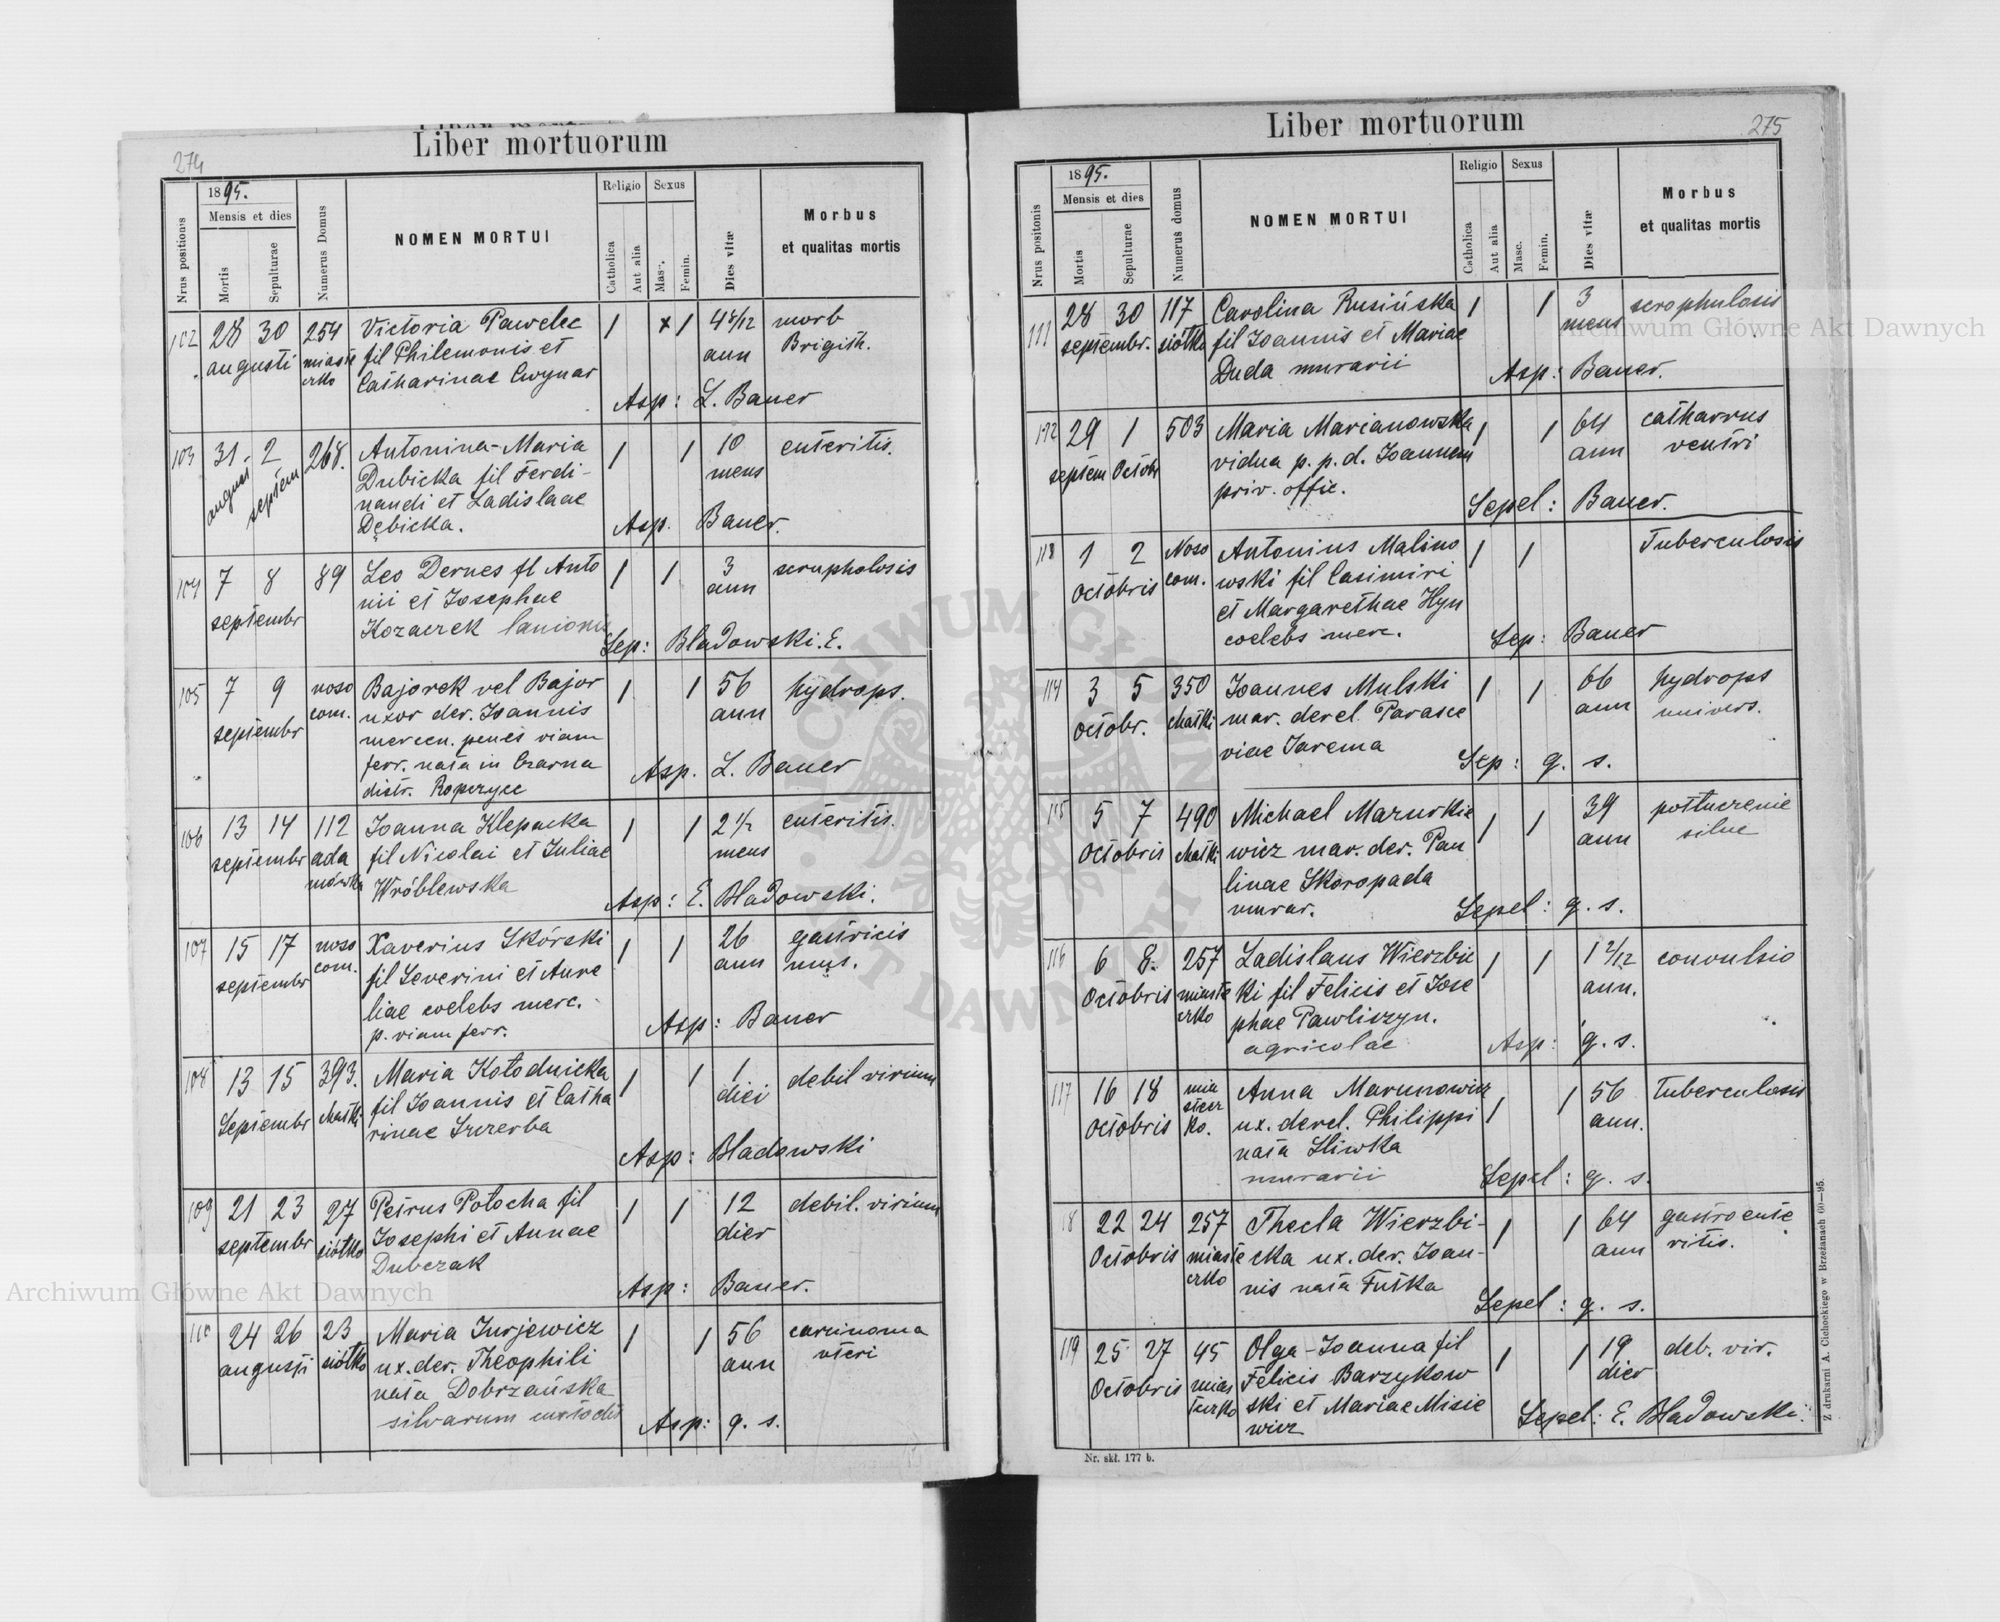 Liber mortuorum
274
Nrus positionis
1895.
Mensis et dies
Mortis
Sepulturae
Numerus Domus
NOMEN MORTUI
Religio
Catholica
Aut alia
Sexus
Masc.
Femin.
Dies vitæ
Morbus
et qualitas mortis
102 28 30 254 Victoria Pawelec 1 x 1 4 4/12 morb
augusti miaste fil Philemonis et ann Brigith.
czko Catharinae Cwynar
Asp: L. Bauer
103 31 2 268. Antonina-Maria 1 1 10 enteritis.
august septem Dubicka fil Ferdi- mens
nandi et Ladislaae
Dębicka.
Asp. Bauer.
104 7 8 89 Leo Dernes fl Anto 1 1 3 scrupholosis
septembr nii et Josephae ann
Kozaczek lanionis
Sep: Bladowski. E.
105 7 9 noso Bajorek vel Bajor 1 1 56 hydrops.
septembr com. uxor der. Joannis ann
mercen. penes viam
ferr. nata in Czarna
distr. Ropczyce
Asp. L. Bauer
106 13 14 112 Joanna Klepacka 1 1 2 1/2 enteritis.
septembr ada fil Nicolai et Juliae mens
mówka Wróblewska
Asp: E. Bladowski.
107 15 17 noso Xaverius Skórski 1 1 26 gastricis
septembr com. fil Severini et Aure ann mus.
liae coelebs merc.
p. viam ferr.
Asp: Bauer
108 13 15 393. Maria Kołodnicka 1 1 1 debil virium
Septembr Matki fil Joannis et Catha diei
rinae Szczerba
Asp: Bladowski
109 21 23 27 Petrus Potocha fil 1 1 12 debil. virium
septembr siółko Josephi et Annae dier
Dubczak
Asp: Bauer.
110 24 26 23 Maria Jurjewicz 1 1 56 carcinoma
augusti siółko ux. der. Theophili ann uteri
nata Dobrzańska
silvarum custodis
Asp: q. s.
Liber mortuorum
275
Nrus positionis
1895.
Mensis et dies
Mortis
Sepulturae
Numerus domus
NOMEN MORTUI
Religio
Catholica
Aut alia
Sexus
Masc.
Femin.
Dies vitæ
Morbus
et qualitas mortis
111 28 30 117 Carolina Rusińska 1 1 3 scrophulosis
septembr. siółko fil Joannis et Mariae mens
Duda murarii
Asp: Bauer.
112 29 1 503 Maria Marianowska 1 1 64 catharrus
septem Octobr vidua p. p. d. Joannem ann ventri
priv. offic.
Sepel: Bauer.
113 1 2 Noso Antonius Malino 1 1 Tuberculosis
Octobris com. wski fil Casimiri
et Margarethae Hyn
coelebs merc.
Sep: Bauer
114 3 5 350 Joannes Mulski 1 1 66 hydrops
Octobr. Matki mar. derel. Parasce ann univers.
viae Jarema
Sep: q. s.
115 5 7 490 Michael Mazurkie 1 1 39 potłuczenie
Octobris Matki wicz mar. der. Pau ann silne
linae Skoropada
murar.
Sepel: q. s.
116 6 8. 257 Ladislaus Wierzbic 1 1 1 2/12 convulsio
Octobris miaste ki fil Felicis et Jose ann.
czko phae Pawliczyn.
agricolae
Asp: q. s.
117 16 18 mia Anna Marunowicz 1 1 56 Tuberculosis
Octobris stecz ux. derel. Philippi ann.
ko. nata Sliwka
murarii
Sepel: q. s.
18 22 24 257 Thecla Wierzbi- 1 1 64 gastroente
Octobris miaste cka ux. der. Joan- ann ritis.
czko nis nata Futka
Sepel: q. s.
119 25 27 45 Olga-Joanna fil 1 1 19 deb. vir.
Octobris mias Felicis Barzykow dier
teczko ski et Mariae Misie
wicz
Sepel: E. Bladowski.
Nr. skł. 177 b.
Z drukarni A. Cichockiego w Brzeżanach 60—95.
Archiwum Główne Akt Dawnych
Archiwum Główne Akt Dawnych
ARCHIWUM GŁÓWNE AKT DAWNYCH